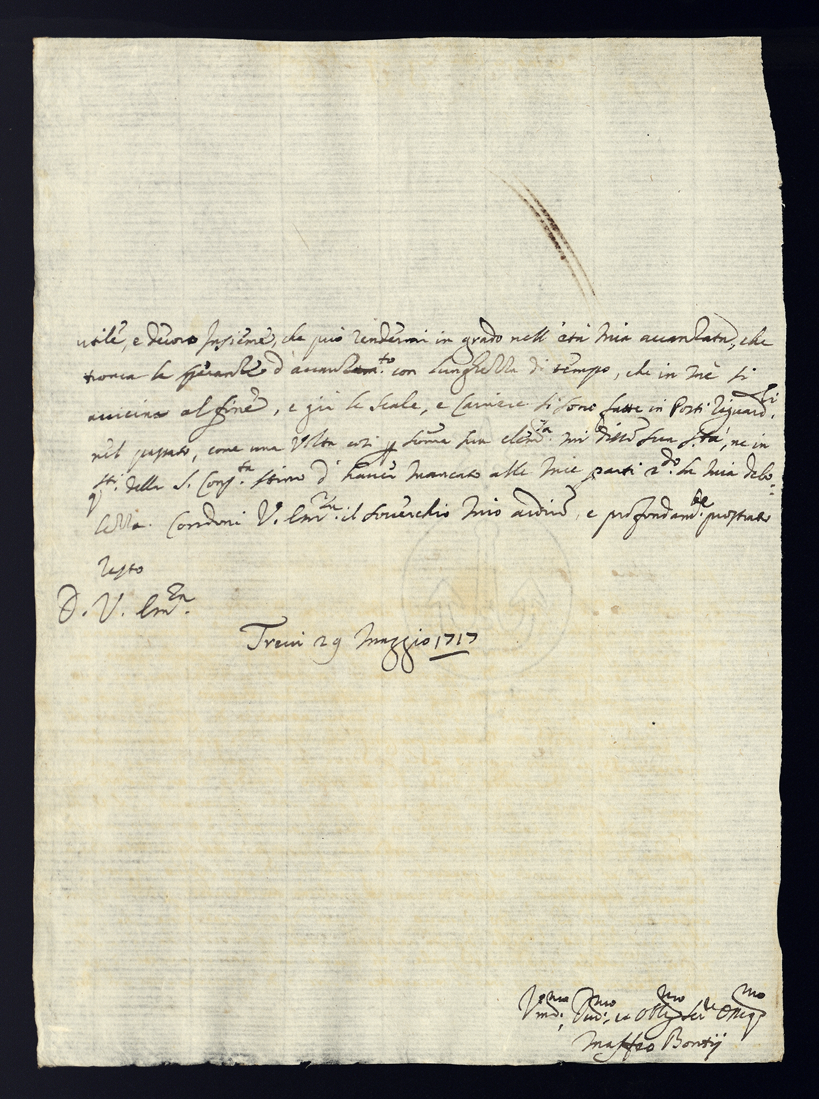 utile, e decoro Insieme, che può rendermi in grado nell' età mia avanzata, che
tronca le speranze d'avanzam.to con lunghezza di tempo, che in me si
avvicina al fine, e già le scale, e carriere si sono fatte in Posti riguard.i
nel passato, come una volta così p somma sua clem.za mi disse sua S.tà, ne in
q.sti della S. Cons.ta stimo d'haver mancato alle mie parti s.do la mia debo=
lezza. Condoni V. Em.za il soverchio mio ardire, e profondam.te prostrato
resto
D. V. Em.za
Trevi 29 Maggio 1717
Um.mo, Dev.mo, et Obb.mo Ser.re Osseq.mo
Maffeo Bontij